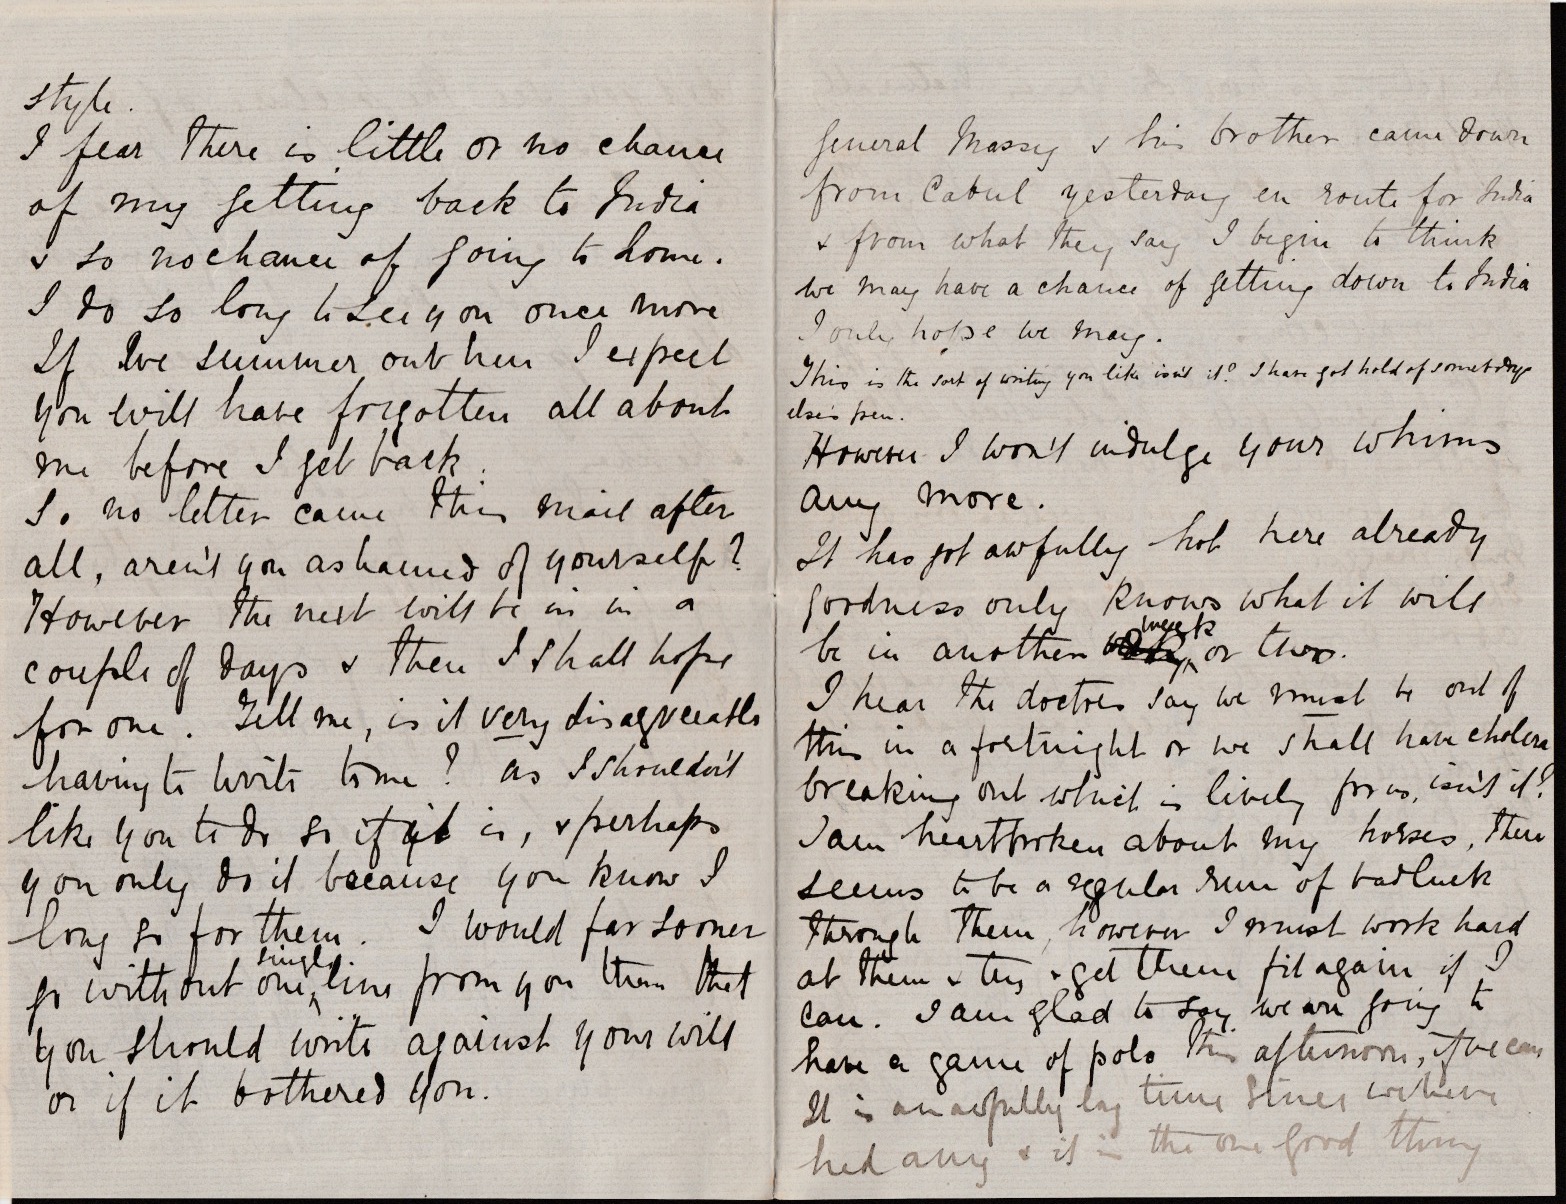 style.
I fear there is little or no chance
of my getting back to India
& so no chance of going to home.
I do so long to see you once more
If I've summer out here I expect
you will have forgotten all about
me before I get back.
So no letter came this mail after
all, aren't you ashamed of yourself?
However the next will be in in a
couple of days & then I shall hope
for one. Tell me, is it very disagreeable
having to write to me? as I shouldn't
like you to do so if it is, & perhaps
you only do it because you know I
long so for them. I would far sooner
go without one single line from you than that
you should write against your will
or if it bothered you.
General Massy & his brother came down
from Cabul yesterday en route for India
& from what they say I begin to think
we may have a chance of getting down to India
I only hope we may.
This is the sort of writing you like isn't it? I have got hold of somebody
else's pen.
However I won't indulge your whims
any more.
It has got awfully hot here already
goodness only knows what it will
be in another week or two.
I hear the doctors say we must be out of
this in a fortnight or we shall have cholera
breaking out which is lively for us, isn't it?
I am heartbroken about my horses, there
seems to be a regular run of bad luck
through them, however I must work hard
at them & try & get them fit again if I
can. I am glad to say we are going to
have a game of polo this afternoon, if we can
It is an awfully long time since we have
had any & it is the one good thing